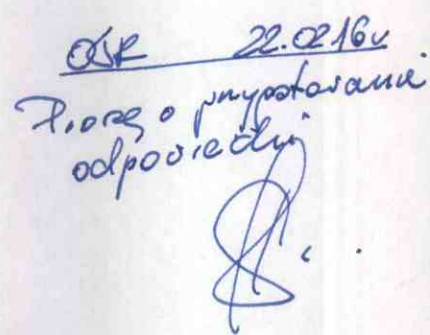 OŚR 22.02.16r
Proszę o przygotowanie
odpowiedzi